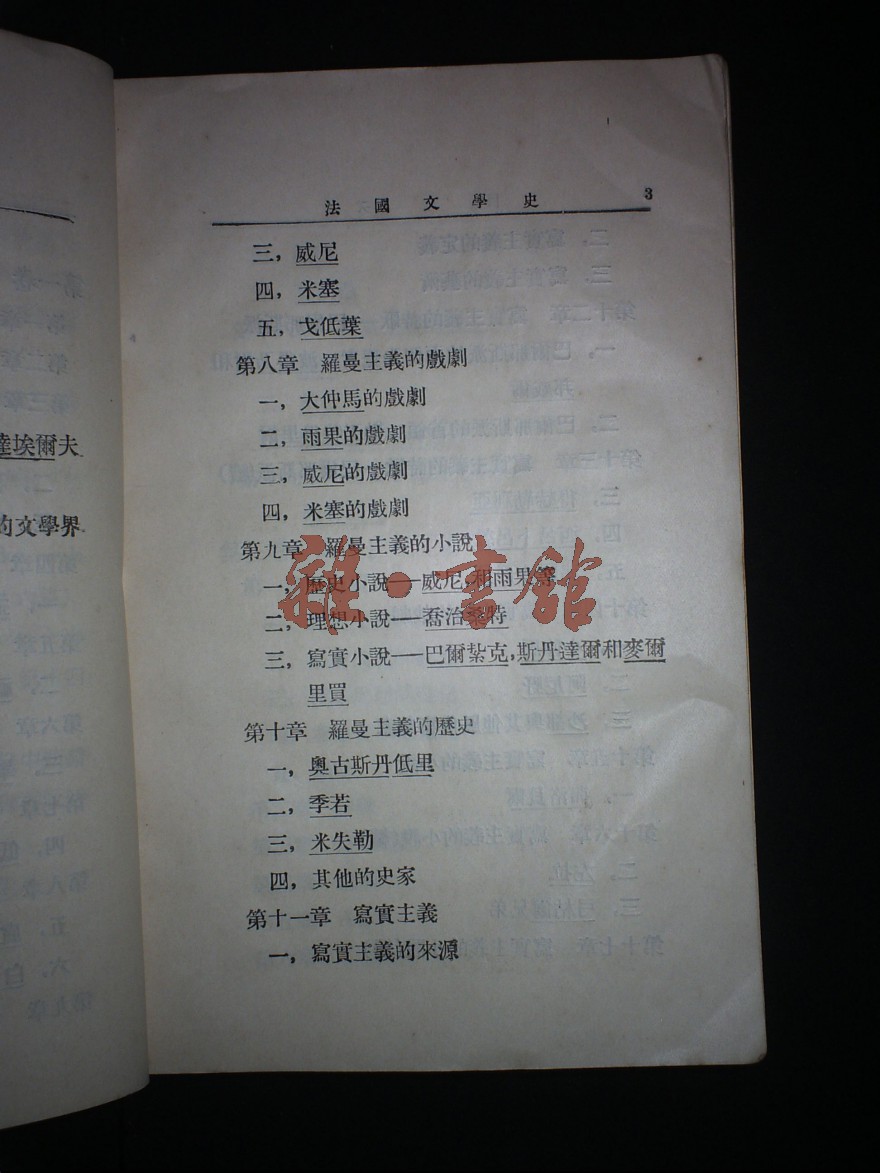 法國文學史 3
三，威尼
四，米塞
五，戈低葉
第八章 羅曼主義的戲劇
一，大仲馬的戲劇
二，雨果的戲劇
三，威尼的戲劇
四，米塞的戲劇
第九章 羅曼主義的小說
一，歷史小說——威尼，和雨果等
二，理想小說——喬治桑特
三，寫實小說——巴爾紮克，斯丹達爾和麥爾
里買
第十章 羅曼主義的歷史
一，奧古斯丹低里
二，季若
三，米失勒
四，其他的史家
第十一章 寫實主義
一，寫實主義的來源
達埃爾夫
的文學界
雜·書館